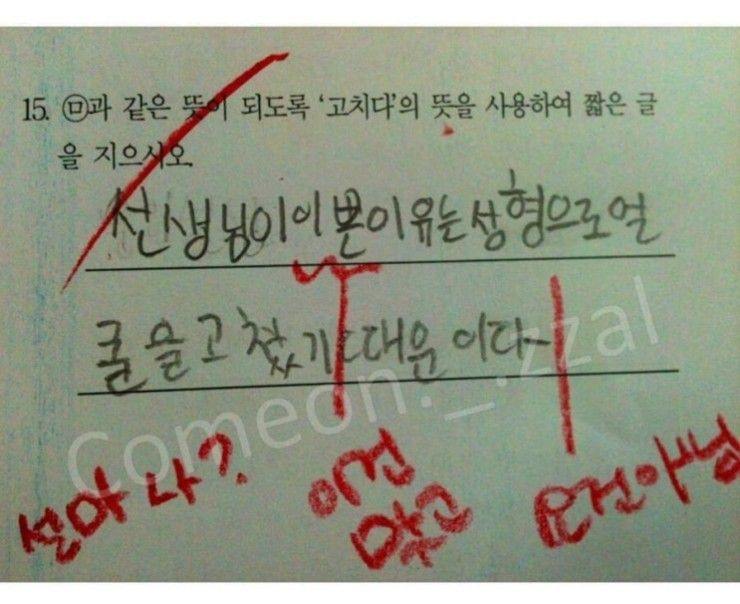 15. ㉤과 같은 뜻이 되도록 '고치다'의 뜻을 사용하여 짧은 글
을 지으시오.
선생님이 이쁜이유는 성형으로 얼
굴을 고쳤기 때문 이다
설마 나?
이건
맞고
요건 아님
Comeon._.zzal